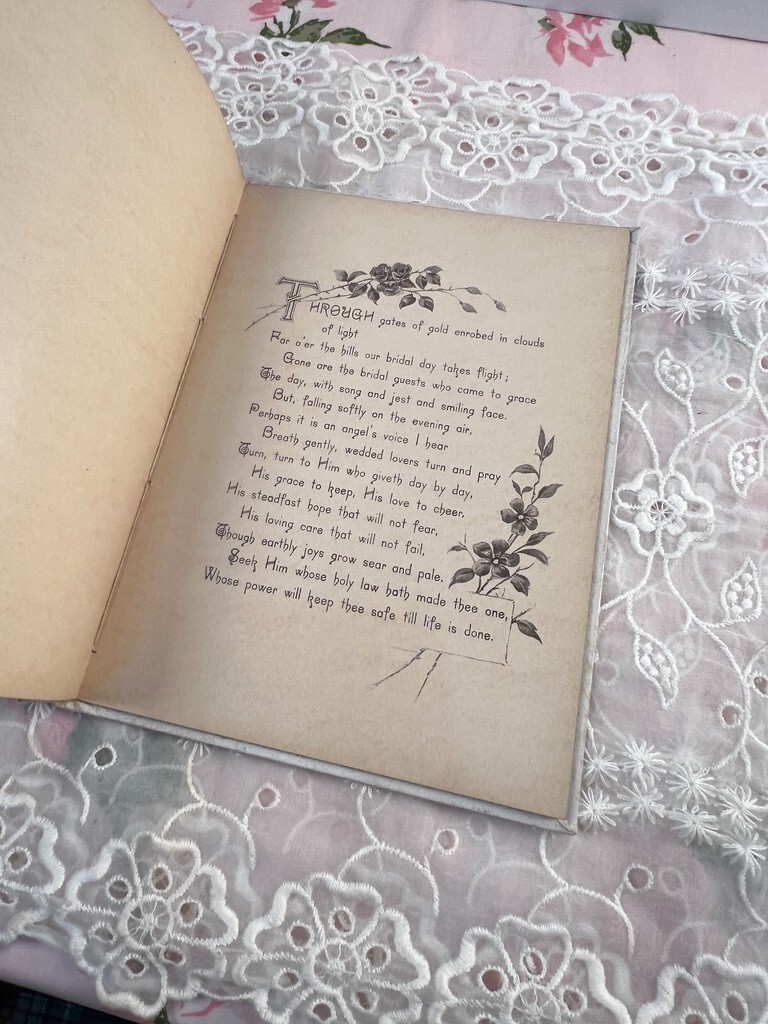 THROUGH gates of gold enrobed in clouds
of light
Far o'er the hills our bridal day takes flight;
Gone are the bridal guests who came to grace
The day, with song and jest and smiling face.
But, falling softly on the evening air,
Perhaps it is an angel's voice I hear
Breath gently, wedded lovers turn and pray
Turn, turn to Him who giveth day by day,
His grace to keep, His love to cheer,
His steadfast hope that will not fear,
His loving care that will not fail,
Though earthly joys grow sear and pale.
Seek Him whose holy law hath made thee one,
Whose power will keep thee safe till life is done.